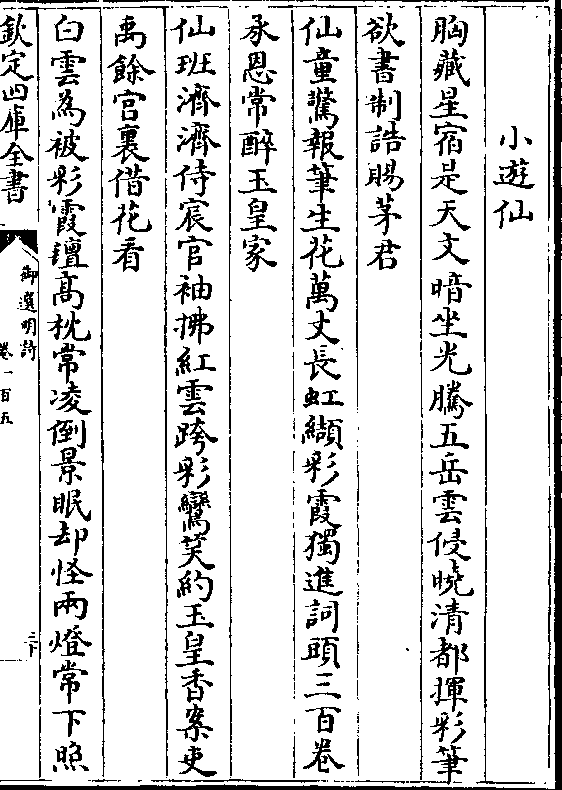 小遊仙
胸藏星宿是天文暗坐光騰五岳雲侵曉清都揮彩筆
欲書制誥賜茅君
仙童驚報筆生花萬丈長虹纈彩霞獨進詞頭三百卷
承恩常醉玉皇家
仙班濟濟侍宸官袖拂紅雲跨彩鸞笑約玉皇香案吏
禹餘宫裏借花看
白雲為被彩霞氊高枕常凌倒景眠却怪兩燈常下照
欽定四庫全書
御選明詩
卷一百五